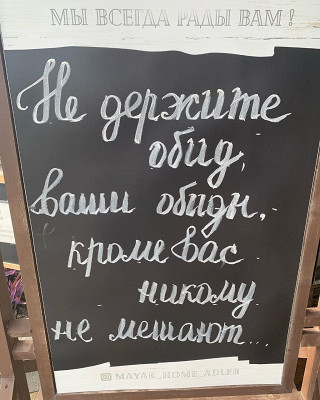 МЫ ВСЕГДА РАДЫ ВАМ!
Не держите
обид,
ваши обиды,
кроме вас
никому
не мешают...
MAYAK_HOME_ADLER